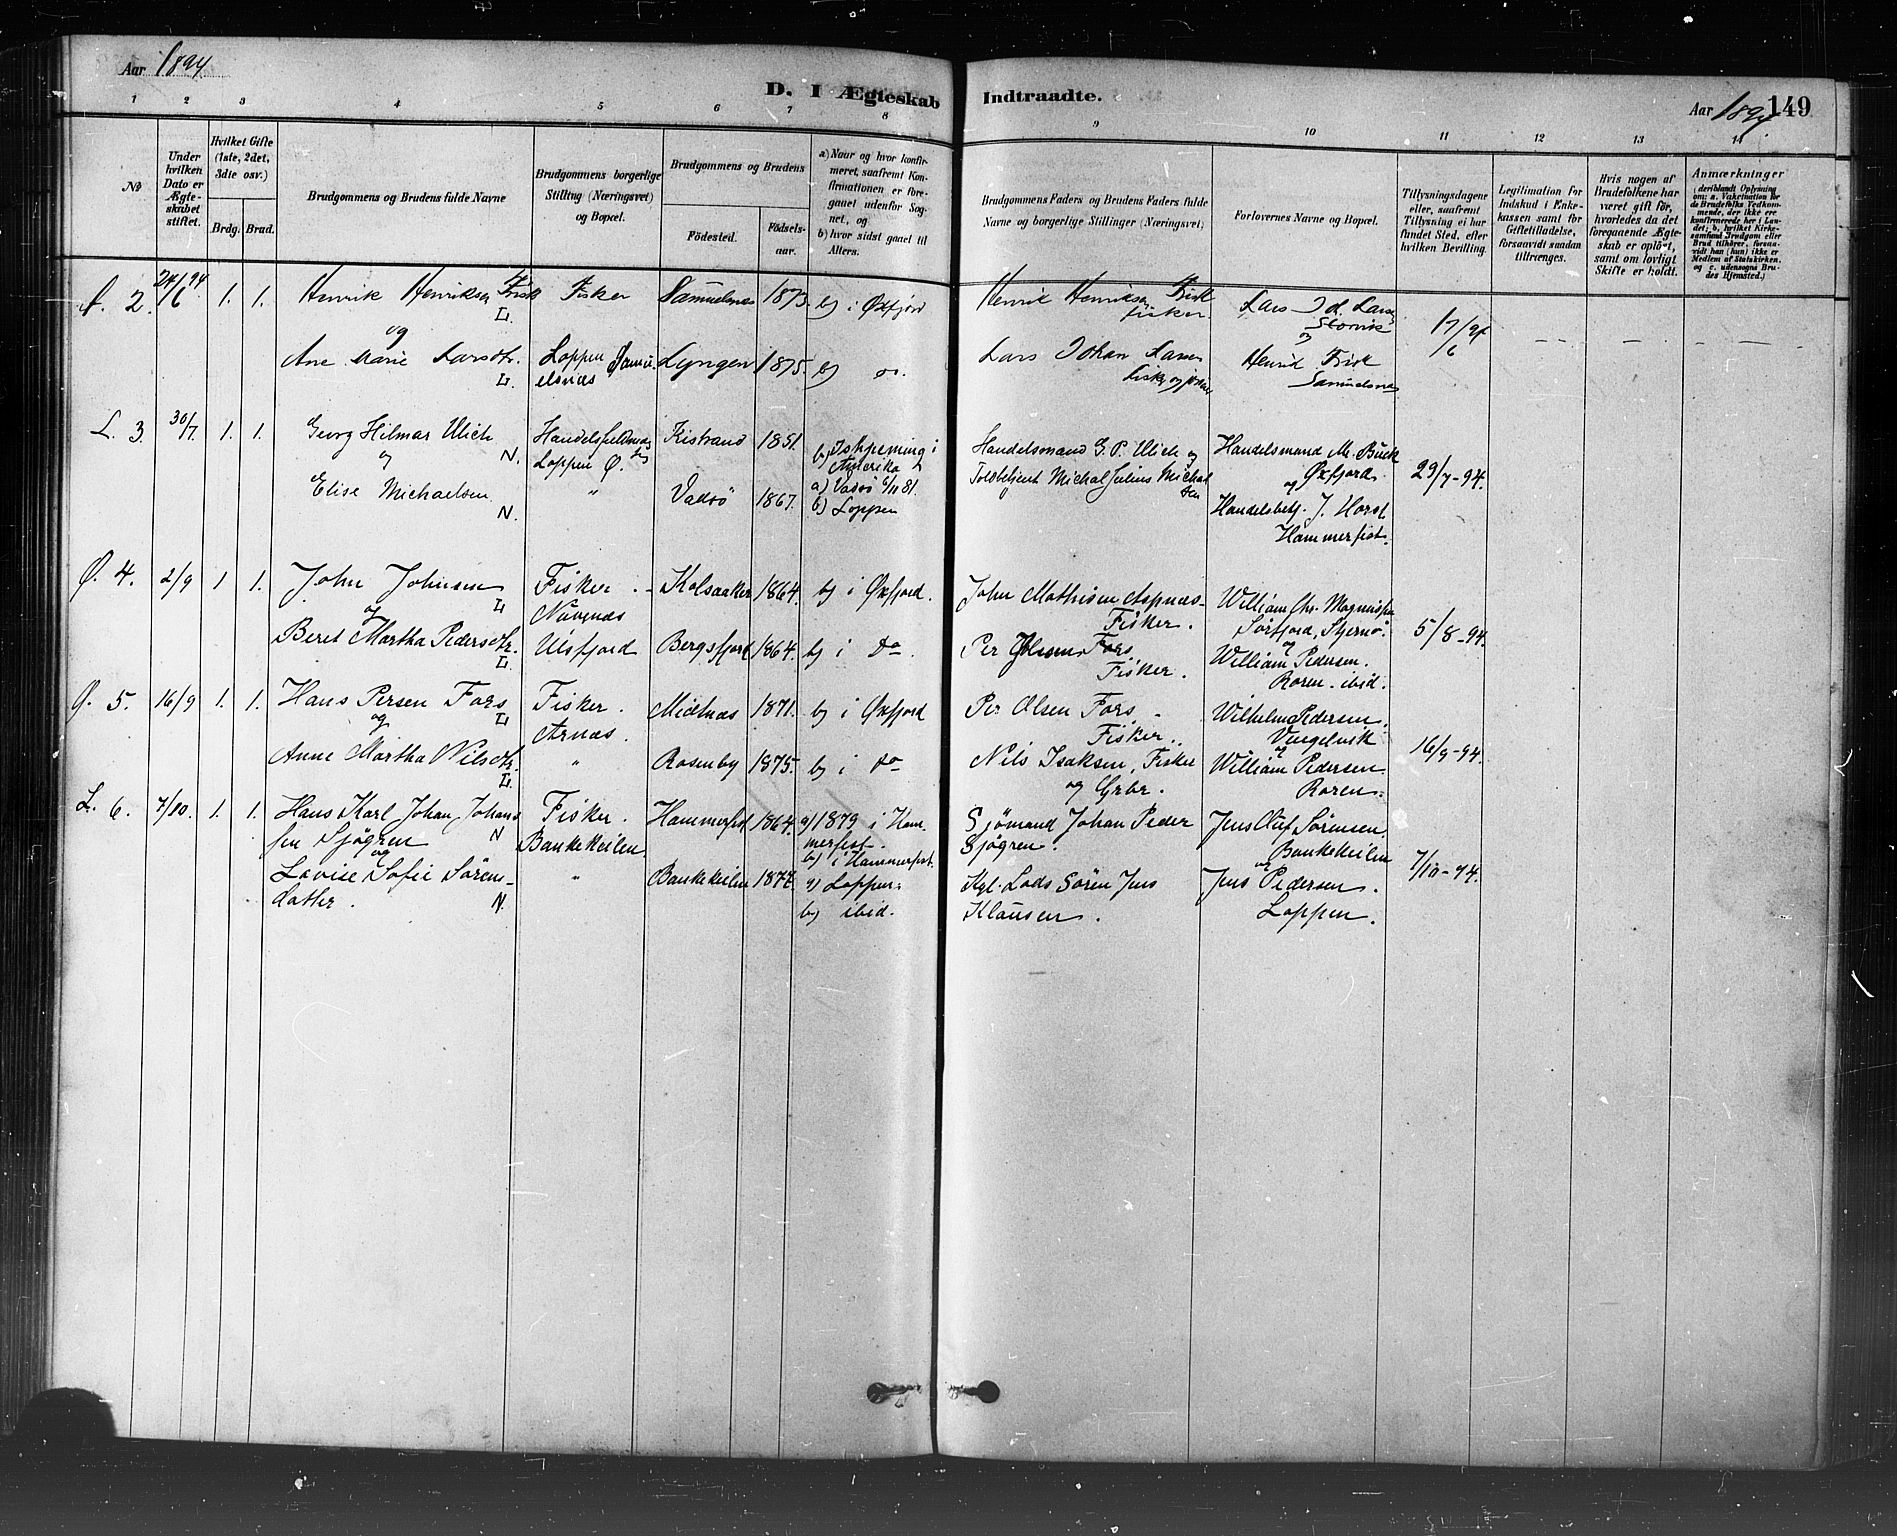 Aar 1894
D. I Ægteskab Indtraadte.
Aar 1894 149
1 2 3 4 5 6 7 8 9 10 11 12 13 14
No
Under hvilken Dato er Ægteskabet stiftet.
Hvilket Gifte (1ste, 2det, 3die osv.)
Brdg. Brud.
Brudgommens og Brudens fulde Navne
Brudgommens borgerlige Stilling (Næringsvei) og Bopæl.
Brudgommens og Brudens
Fødested. Fødselsaar.
a) Naar og hvor konfirmeret, saafremt Konfirmationen er foregaaet udenfor Sognet, og
b) hvor sidst gaaet til Alters.
Brudgommens Faders og Brudens Faders fulde Navne og borgerlige Stillinger (Næringsvei)
Forlovernes Navne og Bopæl.
Tillysningsdagene eller, saafremt Tillysning ei har fundet Sted, efter hvilken Bevilling.
Legitimation for Indskud i Enkekassen samt for Giftetilladelse, forsaavidt saadan tiltrænges.
Hvis nogen af Brudefolkene har været gift før, hvorledes da det foregaaende Ægteskab er opløst, samt om lovligt Skifte er holdt.
Anmærkninger
(deriblandt Oplysning om: a. Vakcination for de Brudefolks Vedkommende, der ikke ere konfirmerede her i Landet; b, hvilket Kirkesamfund Brudgom eller Brud tilhører, forsaavidt han (hun) ikke er Medlem af Statskirken. og c. udensogns Brudes Hjemsted.)
2. 24/6 94 1. 1. Henrik Henriksen Frisk L. Fisker Samuelsnes 1873 b) i Øxfjord Henrik Henriksen Frisk fisker. Lars Joh. Larsen Storvik 17/6 94
og
Ane Marie Larsdtr. L. Loppen Samuelsnæs Lyngen 1875. b) do. Lars Johan Larsen og Henrik Frisk Samuelsnæs
L. 3. 30/7. 1. 1. Georg Hilmar Ulich N. Loppen Ø. Kistrand 1851. b) Ishpeming i Amerika Handelsmand G. P. Ulich og Handelsmand M. Buck Øxfjord. 29/7-94.
og
Elise Michaelsen N. " Vadsø 1867. a) Vadsø 6/11 81. b) Loppen Toldbetjent Michal Julius Michalsen og Handelsbetj. J. Horst Hammerfest.
Ø. 4. 2/9 1 1. John Johnsen L Fisker Kolsaaker 1864. b) i Øxfjord. John Mathisen Aspnæs Fisker. William Chr. Magnussen Sörfjord, Stjernö. 5/8-94.
og
Beret Martha Pedersdtr. L. Ulsfjord Bergsfjord 1864. b) i Do. Per Olsen Fors Fisker. og William Pedersen. Roren. ibid.
Ø. 5. 16/9 1. 1. Hans Persen Fors L Fisker. Arnæs. Midtnæs 1871. b) i Øxfjord Per Olsen Fors Fisker. Wilhelm Pedersen. Vengelvik 16/9-94.
og
Anne Martha Nilsdtr. L. " Rosenby 1875. b) i do Nils Isaksen, Fisker og Grbr. og William Pedersen Roren.
L. 6. 7/10. 1. 1. Hans Karl Johan Johansen Sjøgren N Fisker. Bankekeilen Hammerfest 1864. a) 1879 i Hammerfest. b) i Hammerfest. Sjömand Johan Peder Sjögren. Jens Oluf Sörensen. Bankekeilen 7/10-94.
og
Lovise Sofie Sörensdatter. N. " Bankekeilen 1872 a) Loppen. b) ibid. Kgl. Lods Sören Jens Klausen. og Jens Pedersen. Loppen.